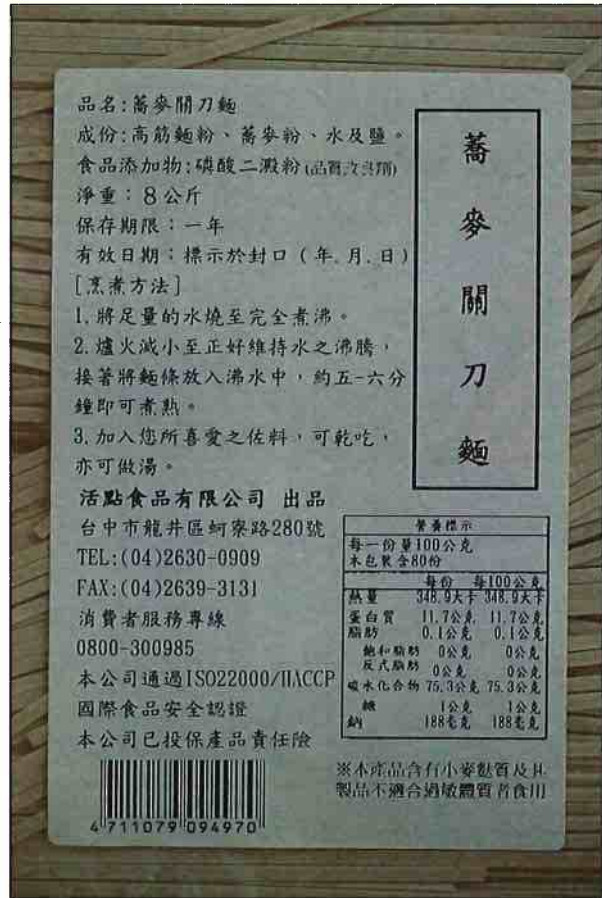 品名:蕎麥關刀麵
成份:高筋麵粉、蕎麥粉、水及鹽。
食品添加物:磷酸二澱粉(品質改良劑)
淨重：8公斤
保存期限：一年
有效日期：標示於封口（年.月.日）
[烹煮方法]
1.將足量的水燒至完全煮沸。
2.爐火減小至正好維持水之沸騰，
接著將麵條放入沸水中，約五-六分
鐘即可煮熟。
3.加入您所喜愛之佐料，可乾吃，
亦可做湯。
活點食品有限公司 出品
台中市龍井區蚵寮路280號
TEL:(04)2630-0909
FAX:(04)2639-3131
消費者服務專線
0800-300985
本公司通過ISO22000/HACCP
國際食品安全認證
本公司已投保產品責任險
4 711079 094970
蕎麥關刀麵
營養標示
每一份量100公克
本包裝含80份
每份 每100公克
熱量 348.9大卡 348.9大卡
蛋白質 11.7公克 11.7公克
脂肪 0.1公克 0.1公克
飽和脂肪 0公克 0公克
反式脂肪 0公克 0公克
碳水化合物 75.3公克 75.3公克
糖 1公克 1公克
鈉 188毫克 188毫克
※本產品含有小麥麩質及其
製品不適合過敏體質者食用